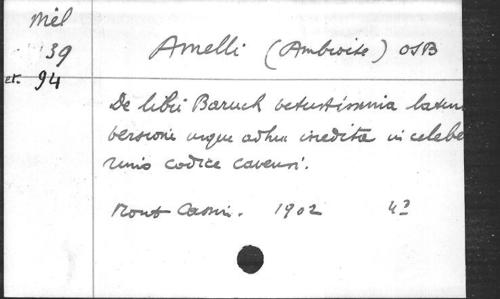 Mél
39
et. 94
Amelli (Ambroise) OSB
De libri Baruch vetustissima latina
versione usque adhuc inedita in celebe
rrimo codice cavensi.
Mont Cassin. 1902 4°